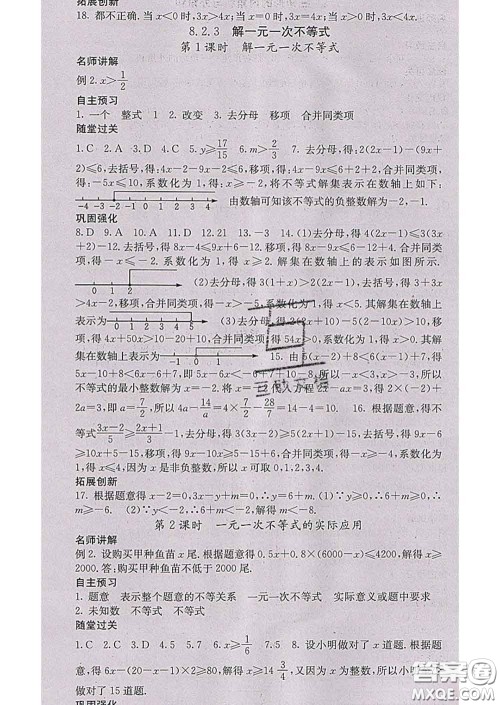 拓展创新
18. 都不正确. 当 x<0 时, 3x>4x; 当 x=0 时, 3x=4x; 当 x>0 时, 3x<4x.
8.2.3 解一元一次不等式
第 1 课时 解一元一次不等式
名师讲解
例 2. x>1/2
自主预习
1. 一个 整式 1 2. 改变 3. 去分母 移项 合并同类项
随堂过关
1. C 2. A 3. D 4. C 5. y≥17/15 6. m>2/3 7. 去分母, 得: 2(2x−1)−(9x+
2)≤6, 去括号, 得: 4x−2−9x−2≤6, 移项, 得: 4x−9x≤6+2+2, 合并同类项,
得: −5x≤10, 系数化为 1, 得: x≥−2, 将不等式解集表示在数轴上如下:
−4 −3 −2 −1 0 1 2 3 4 由数轴可知该不等式的负整数解为−2, −1.
巩固强化
8. D 9. A 10. A 11. D 12. 13. −3 14. (1)去分母, 得 4(2x−1)≤3(3x
+2)−12, 去括号, 得 8x−4≤9x+6−12, 移项, 得 8x−9x≤6−12+4. 合并同类
项, 得−x≤−2. 系数化为 1, 得 x≥2. 解集在数轴上的表示如图所示.
0 1 2 (2)去分母, 得 3(1+x)>2(2x−1), 去括号, 得 3+
3x>4x−2, 移项, 合并同类项, 得−x>−5, 系数化为 1, 得 x<5. 其解集在数轴上
表示为 0 1 2 3 4 5 (3)去分母, 得 2(2x+10)>5(2−10x), 去括号, 移
项, 得 4x+50x>10−20+10, 合并同类项, 得 54x>0, 系数化为 1, 得 x>0. 其解
集在数轴上表示为 −2 −1 0 1 2 15. 由 5(x−2)+8<6(x−1)+7,
去括号, 得 5x−10+8<6x−6+7, 移项, 得 5x−6x<10−8−6+7, 解得 x>−3, 所以
不等式的最小整数解为 x=−2. 将 x=−2 代入方程 2x−ax=3, 得 2×(−2)−a×(−2)
=3, 即 a=7/2, 所以 4a−14/a=4×7/2−28/7=14−4=10. 16. 根据题意, 得不
等式 (3x−2)/5≥(2x+1)/3−1, 去分母, 得 3(3x−2)≥5(2x+1)−15, 去括号, 得 9x−6
≥10x+5−15, 移项, 得 9x−10x≥5−15+6, 合并同类项, 得−x≥−4, 系数化为
1, 得 x≤4, 因为 x 是非负整数, 所以 x 可取 0,1,2,3,4.
拓展创新
17. 根据题意得 x−2=0, 3x−y+m=0, ∴6+m=y. (1)∵y≥0, ∴6+m≥0, 解得
m≥−6. (2)∵y<−2, ∴6+m<−2, 解得 m<−8.
第 2 课时 一元一次不等式的实际应用
名师讲解
例 2. 设购买甲种鱼苗 x 尾. 根据题意得 0.5x+0.8×(6000−x)≤4200, 解得 x≥
2000. 答: 购买甲种鱼苗不低于 2000 尾.
自主预习
1. 题意 表示整个题意的不等关系 一元一次不等式 实际意义或题中要求
2. 未知数 不等式 不等式
随堂过关
1. C 2. C 3. D 4. 5 5. 7 6. x≥1/6 7. 5 8. 设小明做对了 x 道题. 根据题
意, 得 6x−(20−x−1)×2≥80, 解得 x≥14 3/4, 又因为 x 为整数, 所以小明至少
做对了 15 道题.
巩固强化
答案圈
MXQE.COM